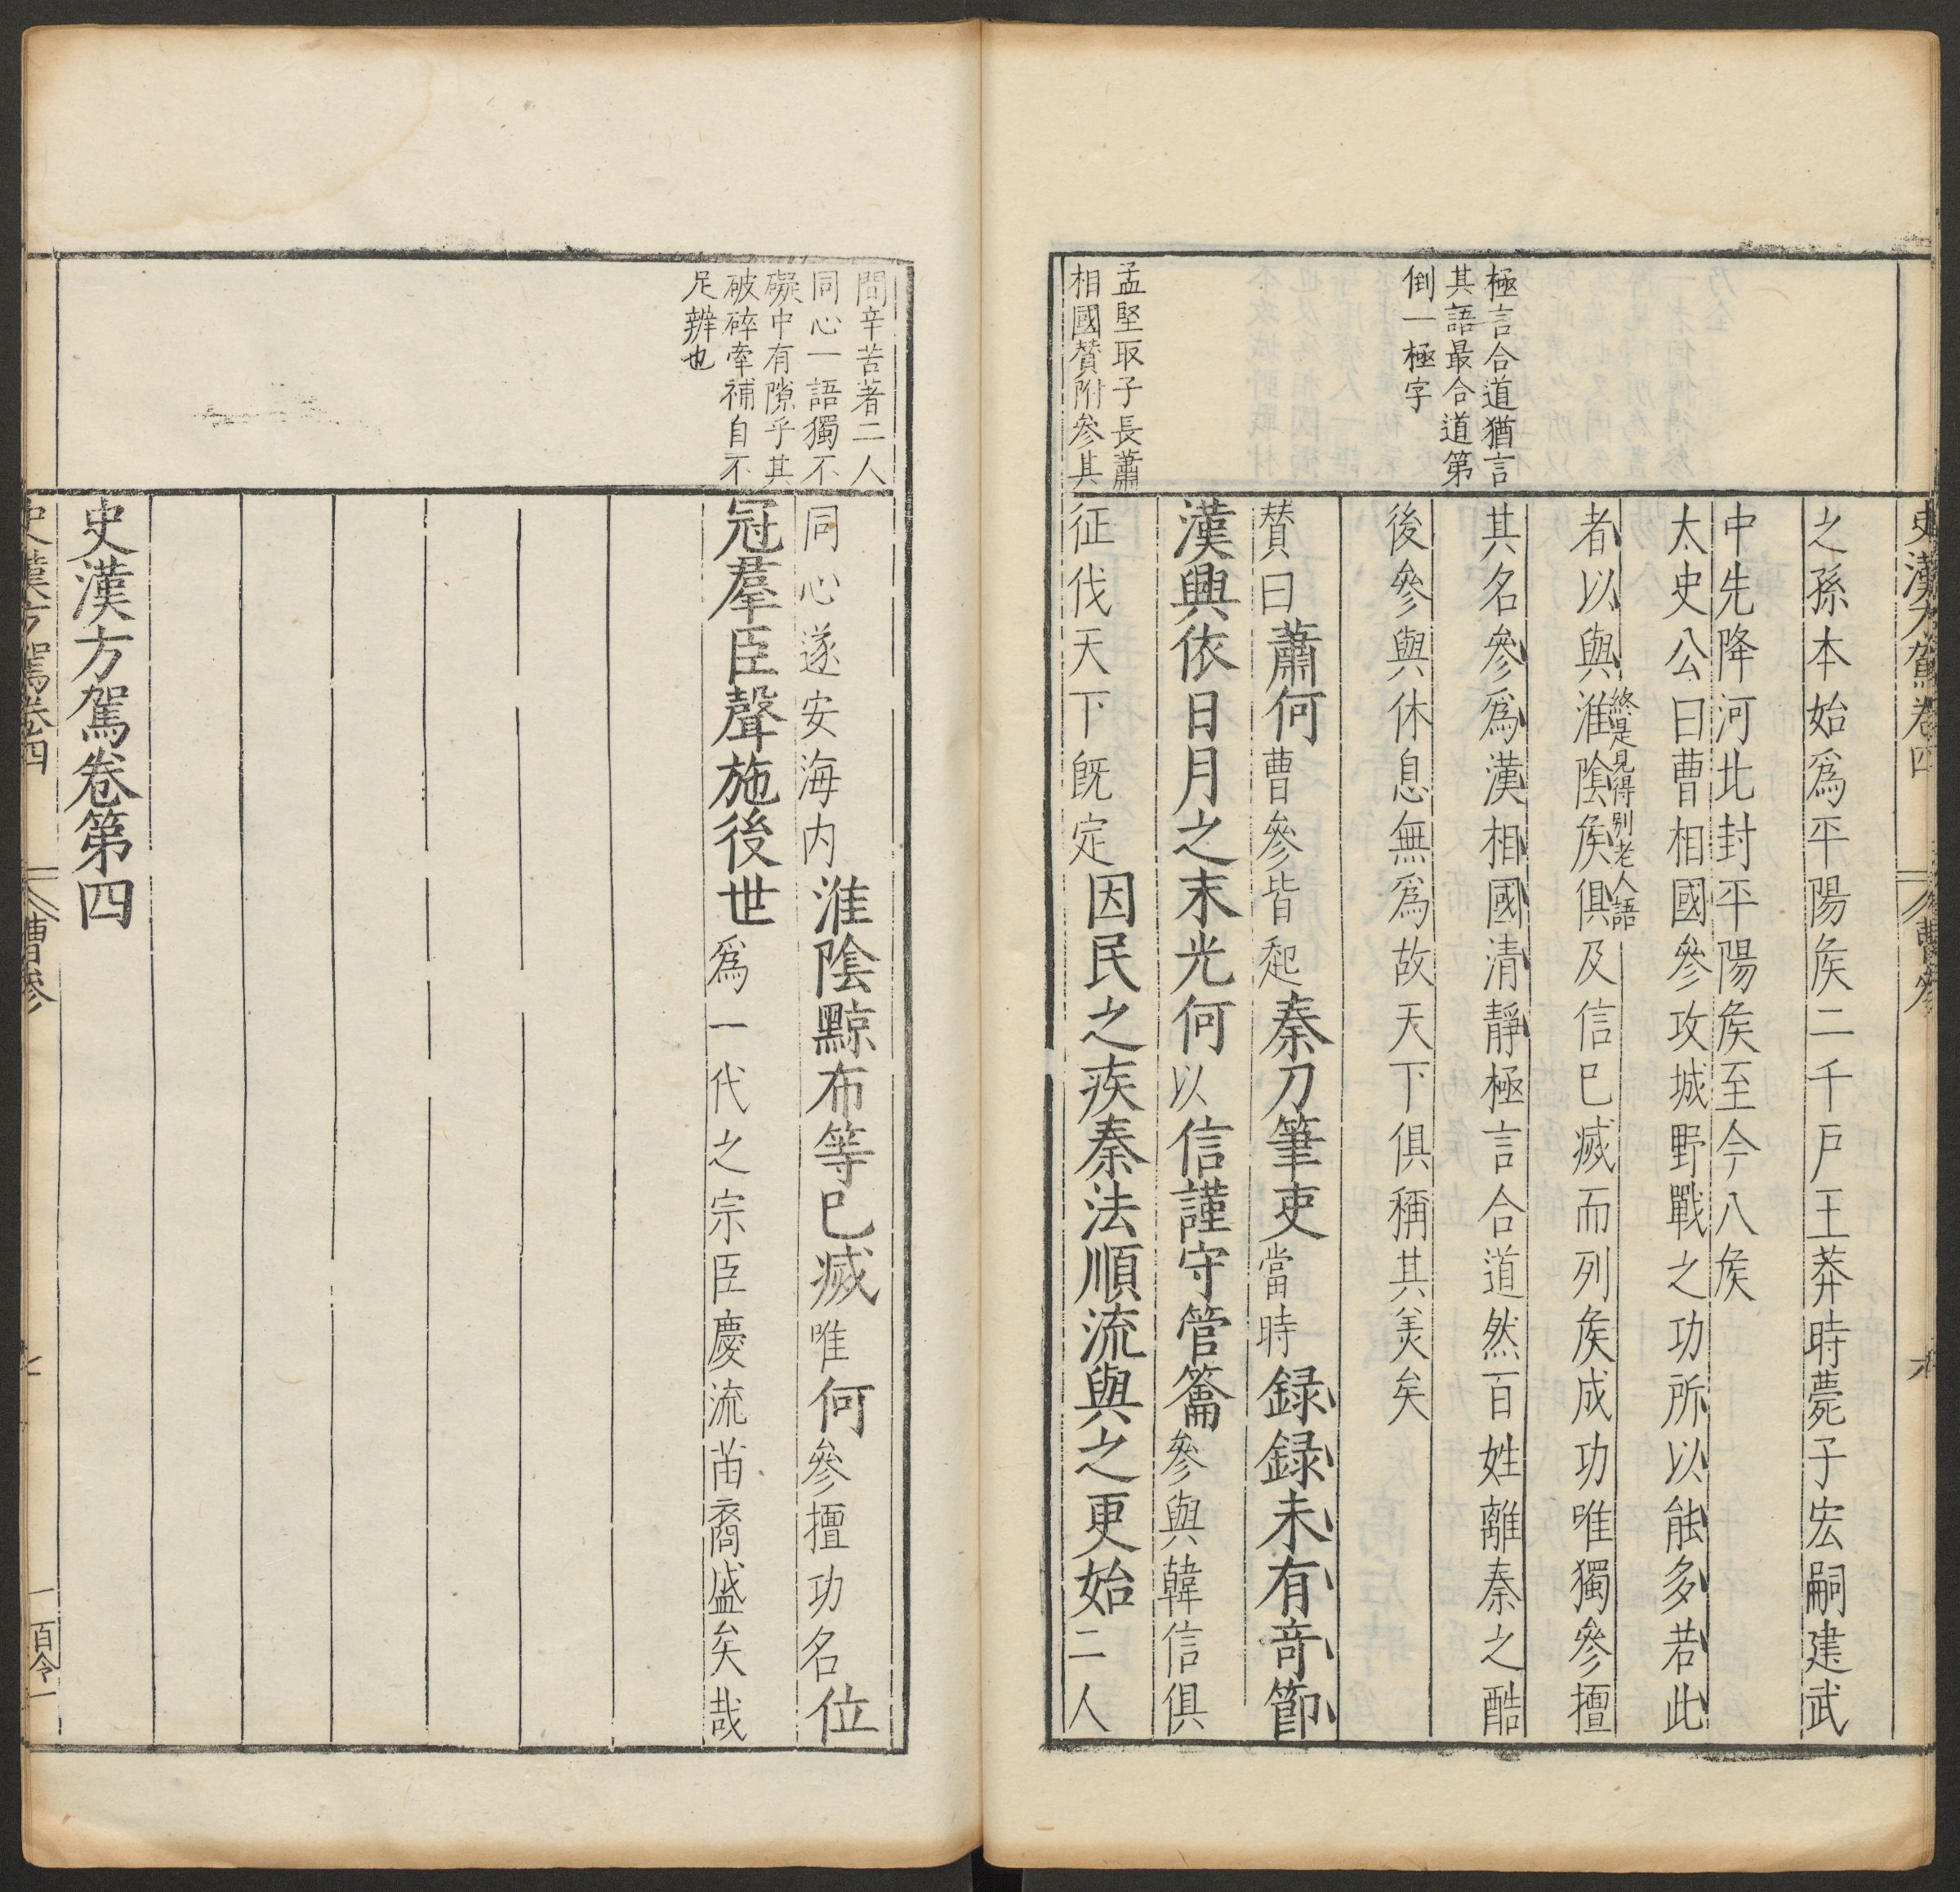 史漢方駕卷四
曹參
六
極言合道猶言
其語最合道第
倒一極字
孟堅取子長蕭
相國贊附參其
之孫本始爲平陽侯二千戶王莽時薨子宏嗣建武
中先降河北封平陽侯至今八侯
太史公曰曹相國參攻城野戰之功所以能多若此
終是見得别老人語
者以與淮陰侯俱及信已滅而列侯成功唯獨參擅
其名參爲漢相國清靜極言合道然百姓離秦之酷
後參與休息無爲故天下俱稱其美矣
贊曰蕭何曹參皆起秦刀筆吏當時録録未有奇節
漢興依日月之末光何以信謹守管籥參與韓信俱
征伐天下既定因民之疾秦法順流與之更始二人
間辛苦著二人
同心一語獨不
礙中有隙乎其
破碎牽補自不
足辨也
同心遂安海内淮陰黥布等已滅唯何參擅功名位
冠羣臣聲施後世爲一代之宗臣慶流苗裔盛矣哉
史漢方駕卷第四
史漢方駕卷四
曹參
七
一百令一